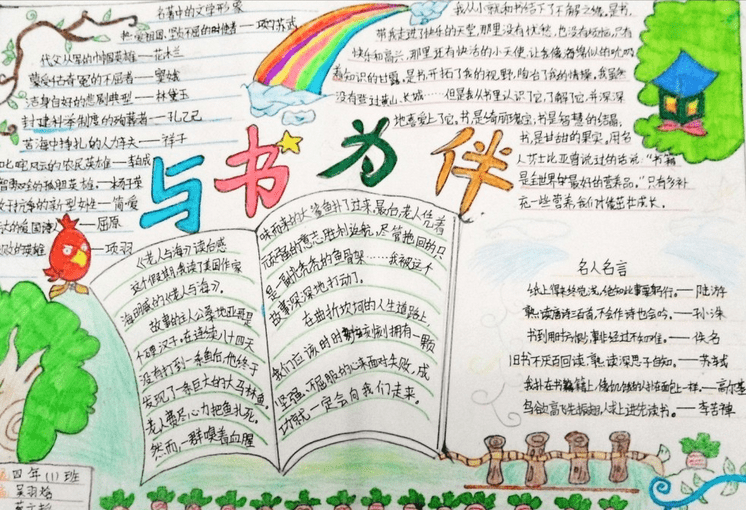 名著中的文学形象
热爱祖国,坚贞不屈的时传者——项苏武
代父从军的巾帼英雄——花木兰
蒙受千古奇冤的不屈者——窦娥
洁身自好的悲剧典型——林黛玉
封建科举制度的殉葬者——孔乙己
苦海中挣扎的人力车夫——祥子
叱咤风云的农民英雄——李自成
的孤胆英雄——杨子荣
于抗争的新型女性——简爱
的爱国诗人——屈原
败的英雄——项羽
我从小就和书结下了不解之缘,是书,
带我走进了快乐的天堂,那里没有忧愁,也没有烦恼,只有
快乐和高兴,那里还有快活的小天使,让我像海绵似的吮吸
着知识的甘露,是书开拓了我的视野,陶冶了我的情操,我虽然
没有登过黄山、长城……但是我从书里认识了它,了解了它,并深深
地喜爱上了它。书是绮丽瑰宝,书是智慧的结晶,
书是甘甜的果实,用名
人莎士比亚曾说过的话说:“书籍
是全世界的最好的营养品。”只有多补
充一些营养,我们才能茁壮成长。
与书为伴
《老人与海》读后感
这个假期我读了美国作家
海明威的《老人与海》。
故事的主人公桑地亚哥是
个硬汉子,在连续八十四天
没有打到一条鱼后,他终于
发现了一条巨大的大马林鱼。
老人费尽心力把鱼扎死。
然而,一群嗅着血腥
味而来的大鲨鱼扑了过来,最后,老人凭着
顽强的意志胜利返航,尽管拖回的只
是一副光秃秃的鱼骨架……我被这个
故事深深地打动了。
在曲折坎坷的人生道路上,
我们应该时时刻刻拥有一颗
坚强、不屈服的心来面对失败,成
功就一定会向我们走来。
名人名言
纸上得来终觉浅,绝知此事要躬行。——陆游
熟读唐诗三百首,不会作诗也会吟。——孙洙
书到用时方恨少,事非经过不知难。——佚名
旧书不厌百回读,熟读深思子自知。——苏轼
我扑在书籍上,像饥饿的人扑在面包上一样。——高尔基
鸟欲高飞先振翅,人求上进先读书。——李苦禅
四年(1)班
吴羽